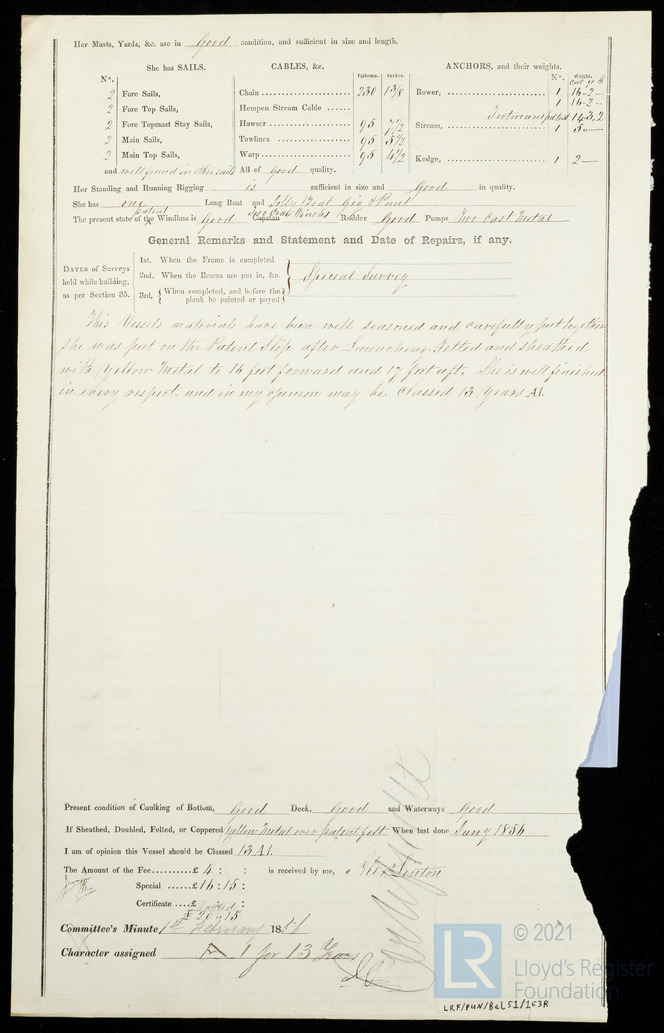 Her Masts, Yards, &c. are in Good condition, and sufficient in size and length.
She has SAILS. CABLES, &c. ANCHORS, and their weights.
N°. Fathoms. Inches. N°. Weight.
2 Fore Sails, Chain 230 1 3/8 Bower, 1 16-2-
2 Fore Top Sails, Hempen Stream Cable 1 16-2-
2 Fore Topmast Stay Sails, Hawser 95 7 1/2 Trotmans patent 14.3.2
2 Main Sails, Towlines 95 5 1/2 Stream, 1 5-
2 Main Top Sails, Warp 95 4 1/2 Kedge, 1 2-
and well found in other sails All of good quality.
Her Standing and Running Rigging is sufficient in size and Good in quality.
She has one Long Boat and Jolly Boat Gig & Punt
The present state of the patent Windlass is Good Capstan Two Crab Winches Rudder Good Pumps Two Cast Metal
General Remarks and Statement and Date of Repairs, if any.
DATES of Surveys held while building, as per Section 35.
1st. When the Frame is completed
2nd. When the Beams are put in, &c.
3rd. When completed, and before the plank be painted or payed
Special Survey
This Vessels materials have been well seasoned and carefully put together
she was put on the Patent Slip after Launching. Felted and sheathed
with Yellow Metal to 16 feet forward and 17 feet aft. She is well finished
in every respect and in my opinion may be Classed 13 Years A1.
Present condition of Caulking of Bottom, Good Deck, Good and Waterways Good
If Sheathed, Doubled, Felted, or Coppered Yellow Metal over patent felt When last done Jany 1856
I am of opinion this Vessel should be Classed 13 A1.
The Amount of the Fee £ 4 : : is received by me,
Special £ 16 : 15 :
Certificate £
£ 20 . 15
Committee's Minute 1st February 1856
Character assigned A 1 for 13 Years
© 2021
LR Lloyd's Register
Foundation
LRF/PUN/BEL51/163R